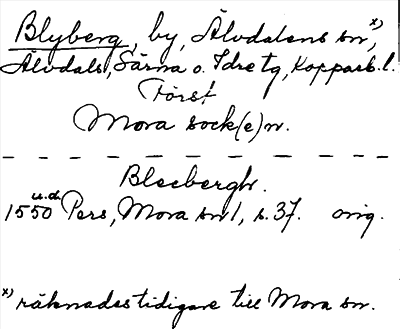 Blyberg, by, Älvdalens sn x),
Älvdals, Särna o. Idre tg, Kopparb. l.
Först
Mora sock(e)n.
Bleebergh.
u.d.
1550 Pers, Mora sn 1, s. 37. orig.
x) räknades tidigare till Mora sn.